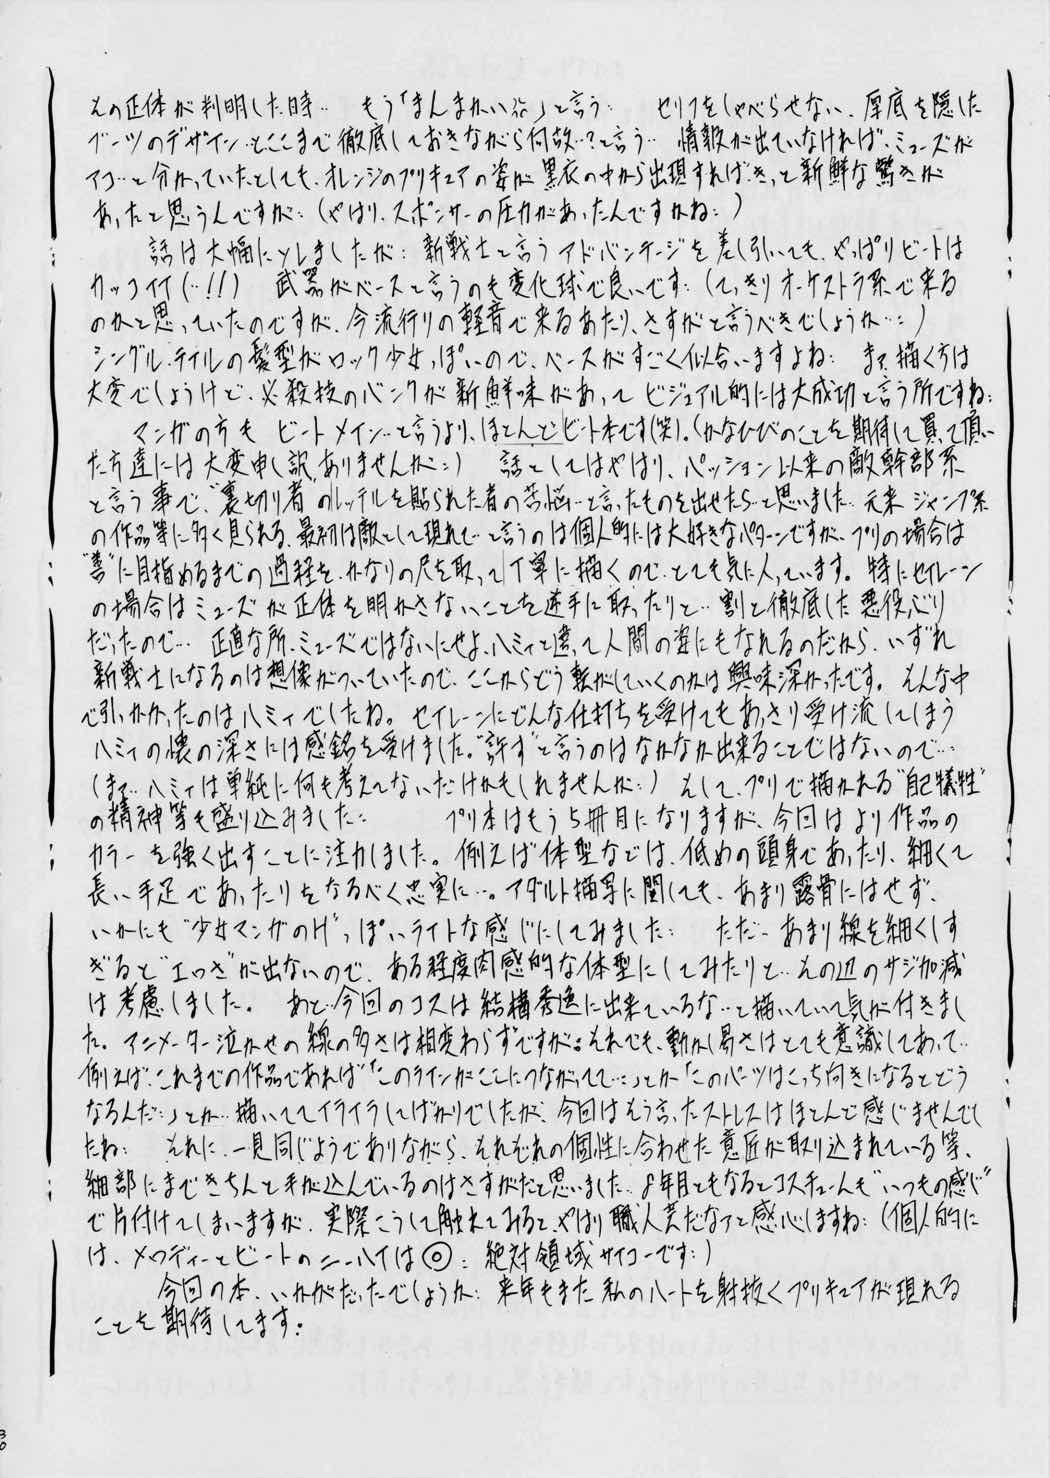 その正体が判明した時… もう「まんまかい㌰」と言う… セリフをしゃべらせない、厚底を隠した
ブーツのデザイン…とここまで徹底しておきながら何故…?と言う… 情報が出ていなければ、ミューズが
アコ…と分かっていたとしても、オレンジのプリキュアの姿が黒衣の中から出現すれば、きっと新鮮な驚きが
あったと思うんですが… (やはり、スポンサーの圧力があったんですかね…)
話は大幅にソレましたが… 新戦士と言うアドバンテージを差し引いても、やっぱりビートは
カッコイイ(…!!) 武器がベースと言うのも変化球で良いです… (てっきりオーケストラ系で来る
のかと思っていたのですが、今流行りの軽音で来るあたり、さすがと言うべきでしょうか…)
シングルテイルの髪型がロック少女っぽいので、ベースがすごく似合いますよね… まァ、描く方は
大変でしょうけど、必殺技のバンクが新鮮味があってビジュアル的には大成功と言う所ですね…
マンガの方もビートメイン…と言うより、ほとんどビート本です(笑)。(かなひびのことを期待して買って頂い
た方達には大変申し訳ありませんが…) 話としてはやはり、パッション以来の敵幹部系
と言う事で、“裏切り者”のレッテルを貼られた者の苦悩…と言ったものを出せたら…と思いました… 元来ジャンプ系
の作品等に多く見られる、最初は敵として現れて…と言うのは個人的には大好きなパターンですが、プリの場合は
“善”に目指めるまでの過程を、かなりの尺を取って丁寧に描くので、とても気に入っています。特にセイレーン
の場合はミューズが正体を明かさないことを逆手に取ったりと…割と徹底した悪役ぶり
だったので… 正直な所、ミューズではないにせよ、ハミィと違って人間の姿にもなれるのだから、いずれ
新戦士になるのは想像がついていたので、ここからどう転がしていくのかは興味深かったです。そんな中
で引っかかったのはハミィでしたね。セイレーンにどんな仕打ちを受けてもあっさり受け流してしまう
ハミィの懐の深さには感銘を受けました。“許す”と言うのはなかなか出来ることではないので…
(まァ…ハミィは単純に何も考えてないだけかもしれませんが…) そして、プリで描かれる“自己犠牲”
の精神等も盛り込みました… プリ本はもう5冊目になりますが、今回はより作品の
カラーを強く出すことに注力しました。例えば体型などは、低めの頭身であったり、細くて
長い手足であったりをなるべく忠実に…。アダルト描写に関しても、あまり露骨にはせず、
いかにも“少女マンガのH”っぽいライトな感じにしてみました… ただ…あまり線を細くしす
ぎると“エロさ”が出ないので、ある程度肉感的な体型にしてみたりと…その辺のサジ加減
は考慮しました。 あと…今回のコスは結構秀逸に出来ているな…と描いていて気が付きまし
た。アニメーター泣かせの線の多さは相変わらずですが… それでも、動かし易さはとても意識してあって…
例えば、これまでの作品であれば「このラインがここにつながってて…」とか「このパーツはこっち向きになるとどう
なるんだ…」とか…描いててイライラしてばかりでしたが、今回はそう言ったストレスはほとんど感じませんでし
たね… それに、一見同じようでありながら、それぞれの個性に合わせた意匠が取り込まれている等、
細部にまできちんと手が込んでいるのはさすがだと思いました… 8年目ともなるとコスチュームも“いつもの感じ”
で片付けてしまいますが、実際こうして触れてみると、やはり職人芸だなァと感心しますね… (個人的に
は、メロディーとビートのニーハイは◎… 絶対領域サイコーです…)
今回の本、いかがだったでしょうか… 来年もまた私のハートを射抜くプリキュアが現れる
ことを期待してます…